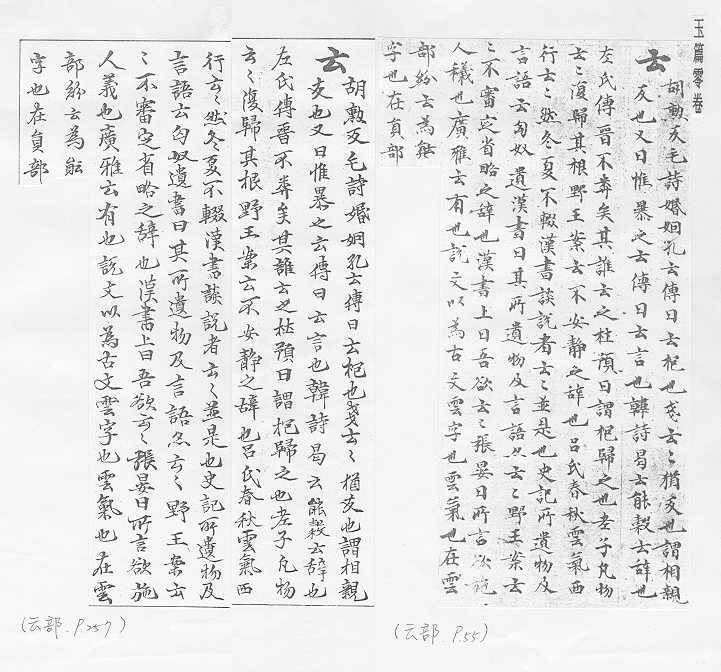 玉篇零卷
云
胡勳反毛詩婚姻孔云傳曰云杞也戔云〻猶友也謂相親
友也又曰惟暴之云傳曰云言也韓詩曷云能穀云辞也
左氏傳晋不鄰矣其誰云之杜預曰謂杞歸之也老子凡物
云〻復歸其根野王案云不安静之辞也吕氏春秋雲氣西
行云〻然冬夏不輟漢書談説者云〻並是也史記所遺物及
言語云匈奴遺漢書曰其所遺物及言語如云〻野王案云
〻不審定省略之辞也漢書上曰吾欲云〻張晏曰所言欲施
人義也廣雅云有也說文以為古文雲字也雲氣也在雲
部紛云為䰟
字也在貟部
云
胡勳反毛詩婚姻孔云傳曰云杞也戔云〻猶友也謂相親
友也又曰惟暴之云傳曰云言也韓詩曷云能穀云辞也
左氏傳晋不鄰矣其誰云之杜預曰謂杞歸之也老子凡物
云〻復歸其根野王案云不安静之辞也吕氏春秋雲氣西
行云〻然冬夏不輟漢書談説者云〻並是也史記所遺物及
言語云匈奴遺書曰其所遺物及言語如云〻野王案云
〻不審定省略之辞也漢書上曰吾欲云〻張晏曰所言欲施
人義也廣雅云有也說文以為古文雲字也雲氣也在雲
部紛云為䰟
字也在貟部
(云部 P.257)
(云部 P.55)